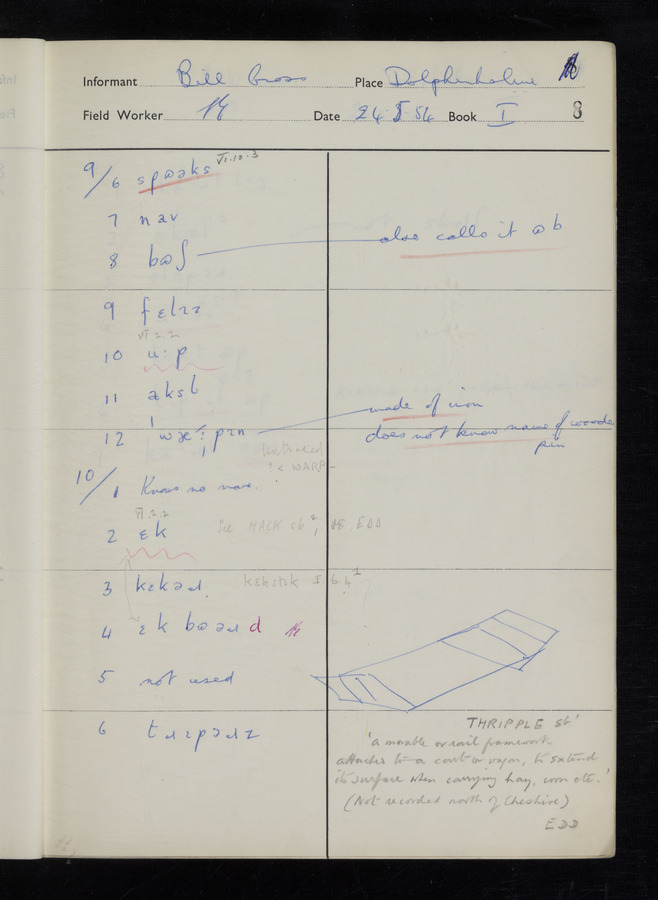 Informant Bill Cross Place Dolphinholme
Field Worker Date 24·5·54 Book I 8
9/6 spɷəks VI.10.3
7 nav
8 bɷʃ also calls it ɷb
9 fɛlɪz
VI 2.2
10 u:p
11 aksl
made of iron
12 pɪn does not know name of wooden
pin
? < WARP
10/1 Knows no name.
VI.2.2
2 ɛk See HACK sb² EDD
3 kɛkəɹ
4 ɛk bɷəɹd
5 not used
6 tɹɪpəɹz
THRIPPLE sb¹
'a movable or rail framework
attached to a cart or wagon, to extend
its surface when carrying hay, corn etc.'
(Not recorded north of Cheshire)
EDD